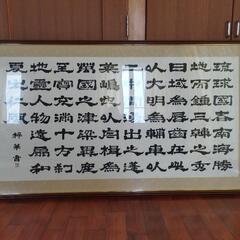 琉球國者南海勝
地而鍾三韓之秀
以大明為輔車以
日域為脣齒在此
二中間湧出之蓬
萊嶋也以舟楫為
萬國之津梁異產
至寶充滿十方刹
地靈人物遠扇和
夏之仁風
華書